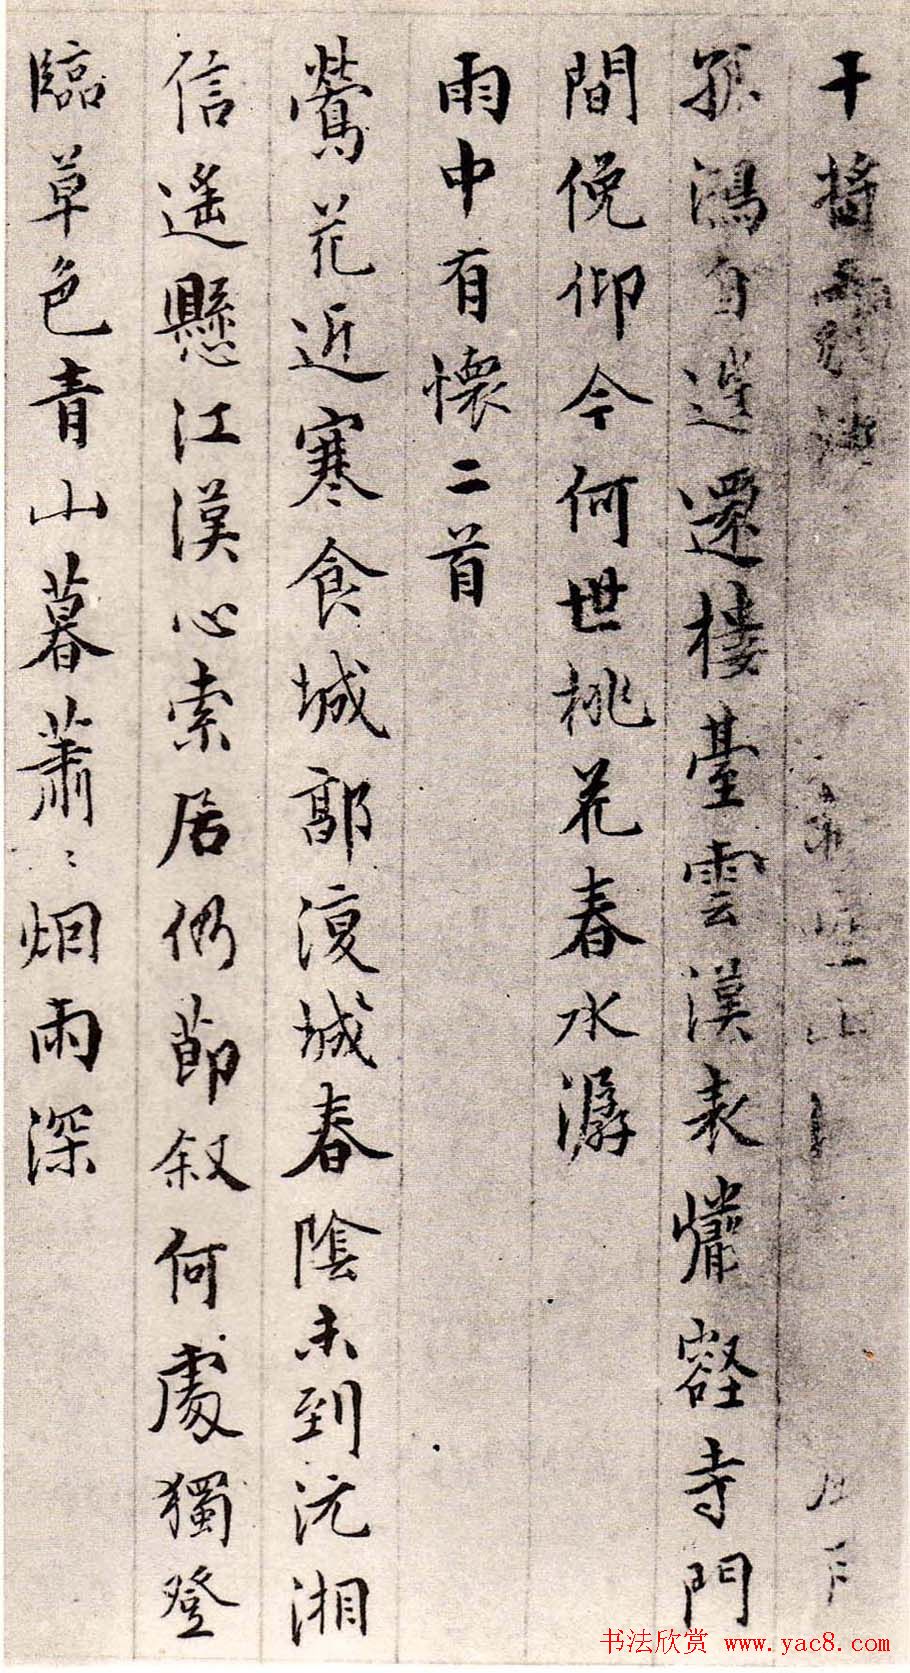 干將
孤鴻自還樓臺雲漢表壑寺門
間俛仰今何世桃花春水潺
雨中有懷二首
鶯花近寒食城郭復城春陰未到沅湘
信遙懸江漢心索居仍節叙何處獨登
臨草色青山暮蕭〻烟雨深
书法欣赏 www.yac8.com